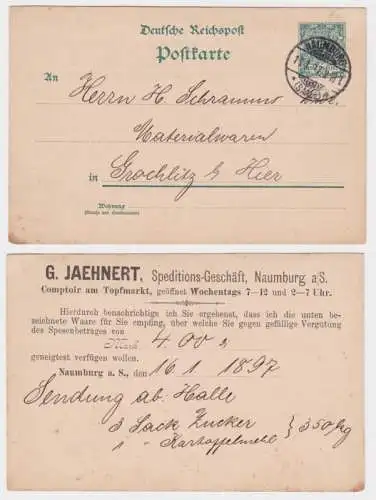 Deutsche Reichspost
Postkarte
NAUMBURG
An
Herrn H. Schramms
Materialwaren
in Grochlitz b/ Hier
Wohnung
(Straße und Hausnummer)
G. JAEHNERT, Speditions-Geschäft, Naumburg a/S.
Comptoir am Topfmarkt, geöffnet Wochentags 7–12 und 2–7 Uhr.
Hierdurch benachrichtige ich Sie ergebenst, dass ich die unten be-
zeichnete Waare für Sie empfing, über welche Sie gegen gefällige Vergütung
des Spesenbetrages von
Mark 4.00
geneigtest verfügen wollen.
Naumburg a. S., den 16/1 1897
Sendung ab: Halle
3 Sack Zucker
1 " Kartoffelmehl } 350 kg